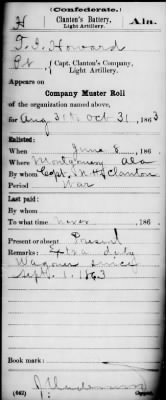 (Confederate.)
H Clanton's Battery, Light Artillery. Ala.
T. J. Howard
Pvt, Capt. Clanton's Company, Light Artillery.
Appears on
Company Muster Roll
of the organization named above,
for Aug 31 to Oct 31, 1863
Enlisted:
When June 8, 186
Where Montgomery Ala
By whom Capt. N. H. Clanton
Period War
Last paid:
By whom
To what time never, 186
Present or absent Present
Remarks: Extra duty
Wagoner since
Sept. 1, 1863
Book mark:
(642) Copyist.